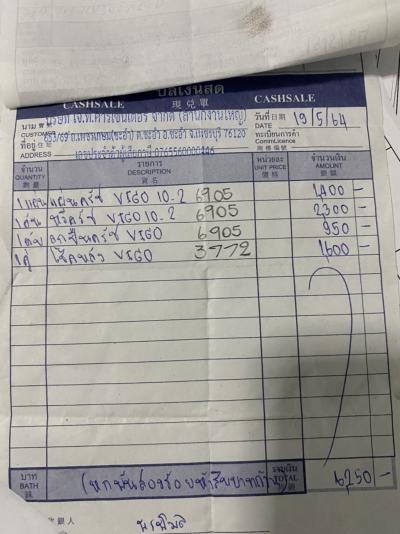 บิลเงินสด
CASHSALE 現兑單 CASHSALE
นาม บริษัท เจ.ที.คาร์เซ็นเตอร์ จำกัด (สำนักงานใหญ่) วันที่日期 19/5/64
CUSTOMER 653/69 ถ.เพชรเกษม(ชะอำ) ต.ชะอำ อ.ชะอำ จ.เพชรบุรี 76120 DATE
ที่อยู่ 住址 ทะเบียนการค้า
ADDRESS เลขประจำตัวผู้เสียภาษี CommLicence
商標編號
จำนวน รายการ หน่วยละ จำนวนเงิน
QUANTITY DESCRIPTION UNIT PRICE AMOUNT
數量 貨名 價格 銀額
1 แผ่น แผ่นครัช VIGO 10-2 6905 1,400 -
1 อัน หวีครัช VIGO 10-2 6905 2,300 -
1 ลูกปืนครัช VIGO 6905 950 -
1 คู่ โช๊คหลัง VIGO 3772 1,600 -
บาท (หกพันสองร้อยห้าสิบบาทถ้วน) รวมเงิน 6,250 -
BATH TOTAL
銖
收銀人